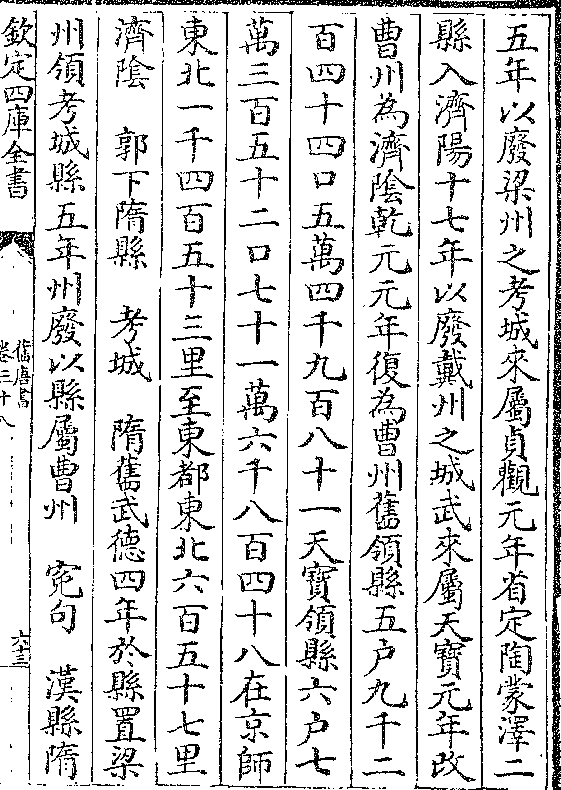 五年以廢梁州之考城來屬貞觀元年省定陶蒙澤二
縣入濟陽十七年以廢戴州之城武來屬天寶元年改
曹州為濟陰乾元元年復為曹州舊領縣五户九千二
百四十四口五萬四千九百八十一天寶領縣六户七
萬三百五十二口七十一萬六千八百四十八在京師
東北一千四百五十三里至東都東北六百五十七里
濟陰　郭下隋縣　考城　隋舊武德四年於縣置梁
州領考城縣五年州廢以縣屬曹州　宛句　漢縣隋
欽定四庫全書
舊唐書
卷三十八
六十三